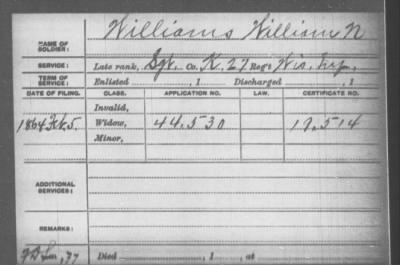 Williams William N
NAME OF SOLDIER:
SERVICE: Late rank, Sgt. Co. K, 27 Reg't Wis. Inf.
TERM OF SERVICE: Enlisted , 1 Discharged , 1
DATE OF FILING. CLASS. APPLICATION NO. LAW. CERTIFICATE NO.
Invalid,
1864 Feb. 5. Widow, 44,530 17,514
Minor,
ADDITIONAL SERVICES:
REMARKS:
Died , 1 , at